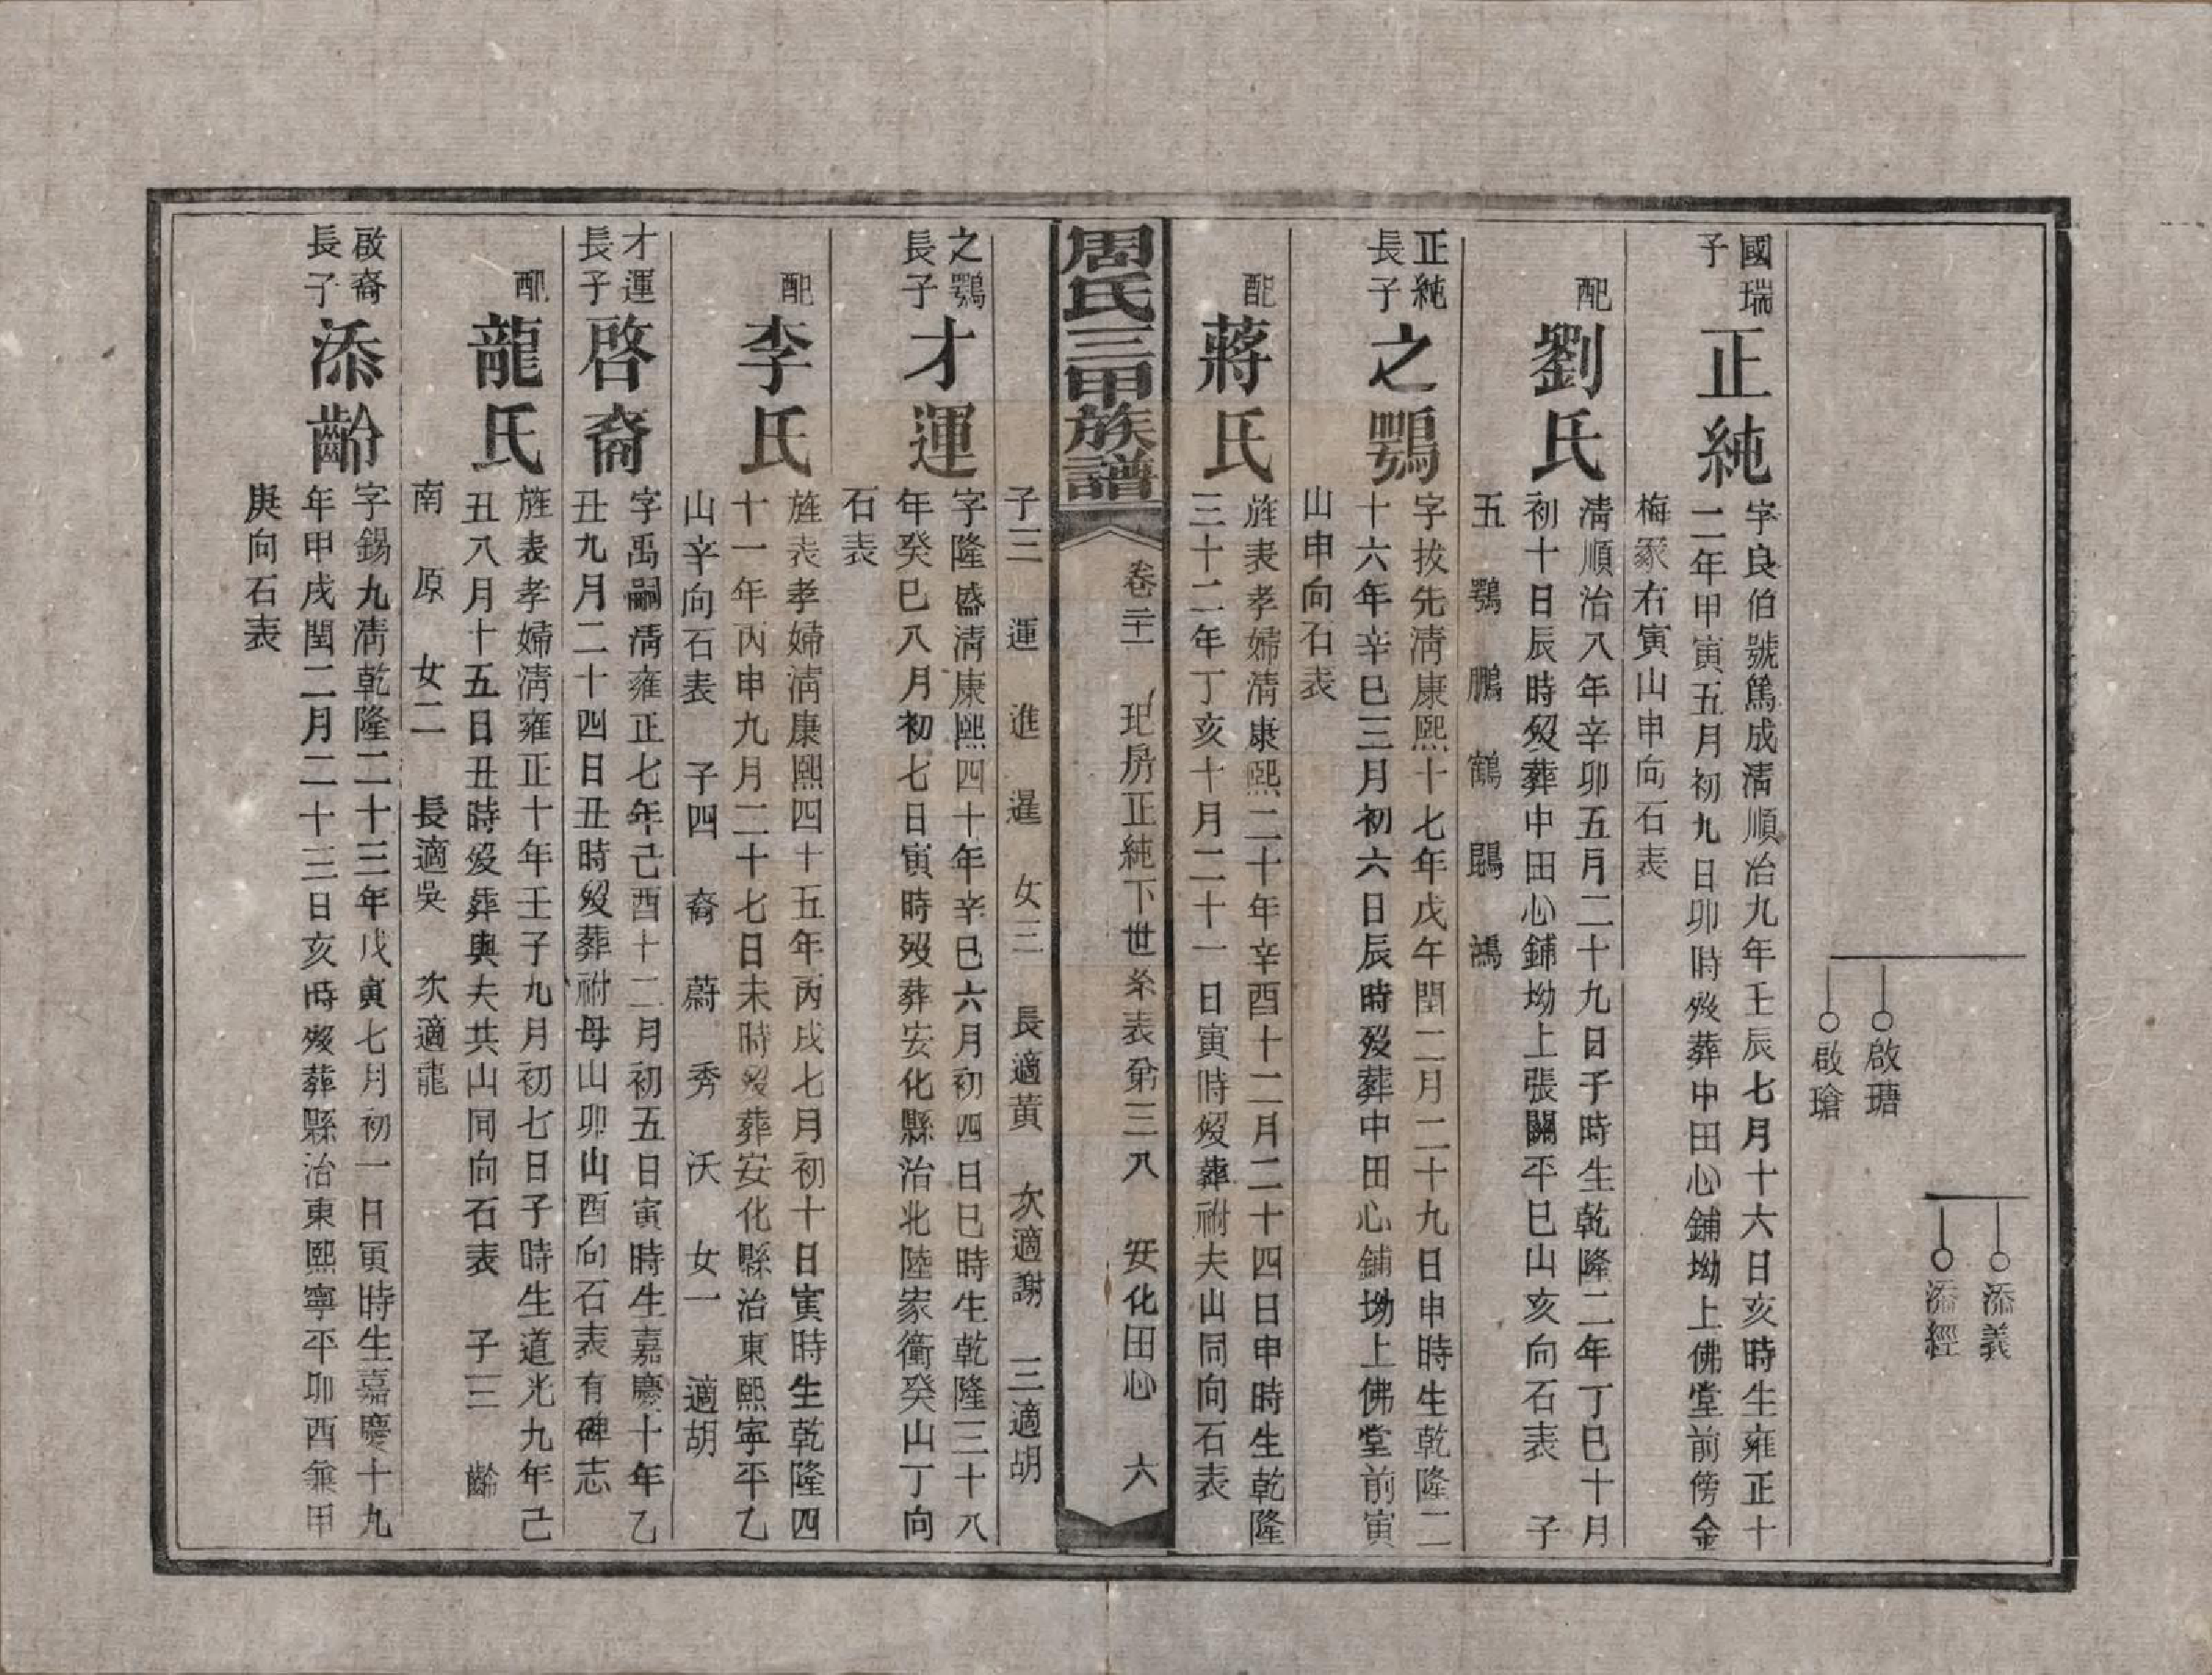 添義
添經
啟瑭
啟瑲
國瑞子
正純
字良伯號篤成清順治九年壬辰七月十六日亥時生雍正十
二年甲寅五月初九日卯時歿葬中田心鋪坳上佛堂前傍金
梅冢右寅山申向石表
配
劉氏
清順治八年辛卯五月二十九日子時生乾隆二年丁巳十月
初十日辰時歿葬中田心鋪坳上張關平巳山亥向石表 子
五 鶚 鵬 鶴 鵾 鴻
正純長子
之鶚
字拔先清康熙十七年戊午閏二月二十九日申時生乾隆二
十六年辛巳三月初六日辰時歿葬中田心鋪坳上佛堂前寅
山申向石表
配
蔣氏
旌表孝婦清康熙二十年辛酉十二月二十四日申時生乾隆
三十二年丁亥十月二十一日寅時歿葬祔夫山同向石表
周氏三甲族譜
卷二十一 玘房正純下世系表第三八 安化田心 六
子三 運 進 暹 女三 長適黃 次適謝 三適胡
之鶚長子
才運
字隆盛清康熙四十年辛巳六月初四日巳時生乾隆三十八
年癸巳八月初七日寅時歿葬安化縣治北陸家衝癸山丁向
石表
配
李氏
旌表孝婦清康熙四十五年丙戌七月初十日寅時生乾隆四
十一年丙申九月二十七日未時歿葬安化縣治東熙寧平乙
山辛向石表 子四 裔 蔚 秀 沃 女一 適胡
才運長子
啓裔
字禹嗣清雍正七年己酉十二月初五日寅時生嘉慶十年乙
丑九月二十四日丑時歿葬祔母山卯山酉向石表有碑志
配
龍氏
旌表孝婦清雍正十年壬子九月初七日子時生道光九年己
丑八月十五日丑時歿葬與夫共山同向石表 子三 齡
南 原 女二 長適吳 次適龍
啟裔長子
添齡
字錫九清乾隆二十三年戊寅七月初一日寅時生嘉慶十九
年甲戌閏二月二十三日亥時歿葬縣治東熙寧平卯酉兼甲
庚向石表